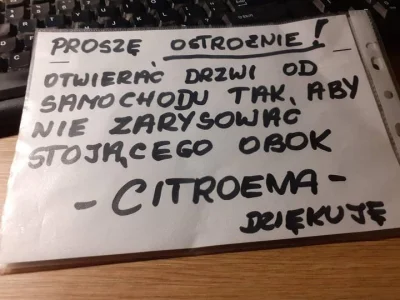 PROSZĘ OSTROŻNIE!
OTWIERAĆ DRZWI OD
SAMOCHODU TAK, ABY
NIE ZARYSOWAĆ
STOJĄCEGO OBOK
- CITROENA -
DZIĘKUJĘ